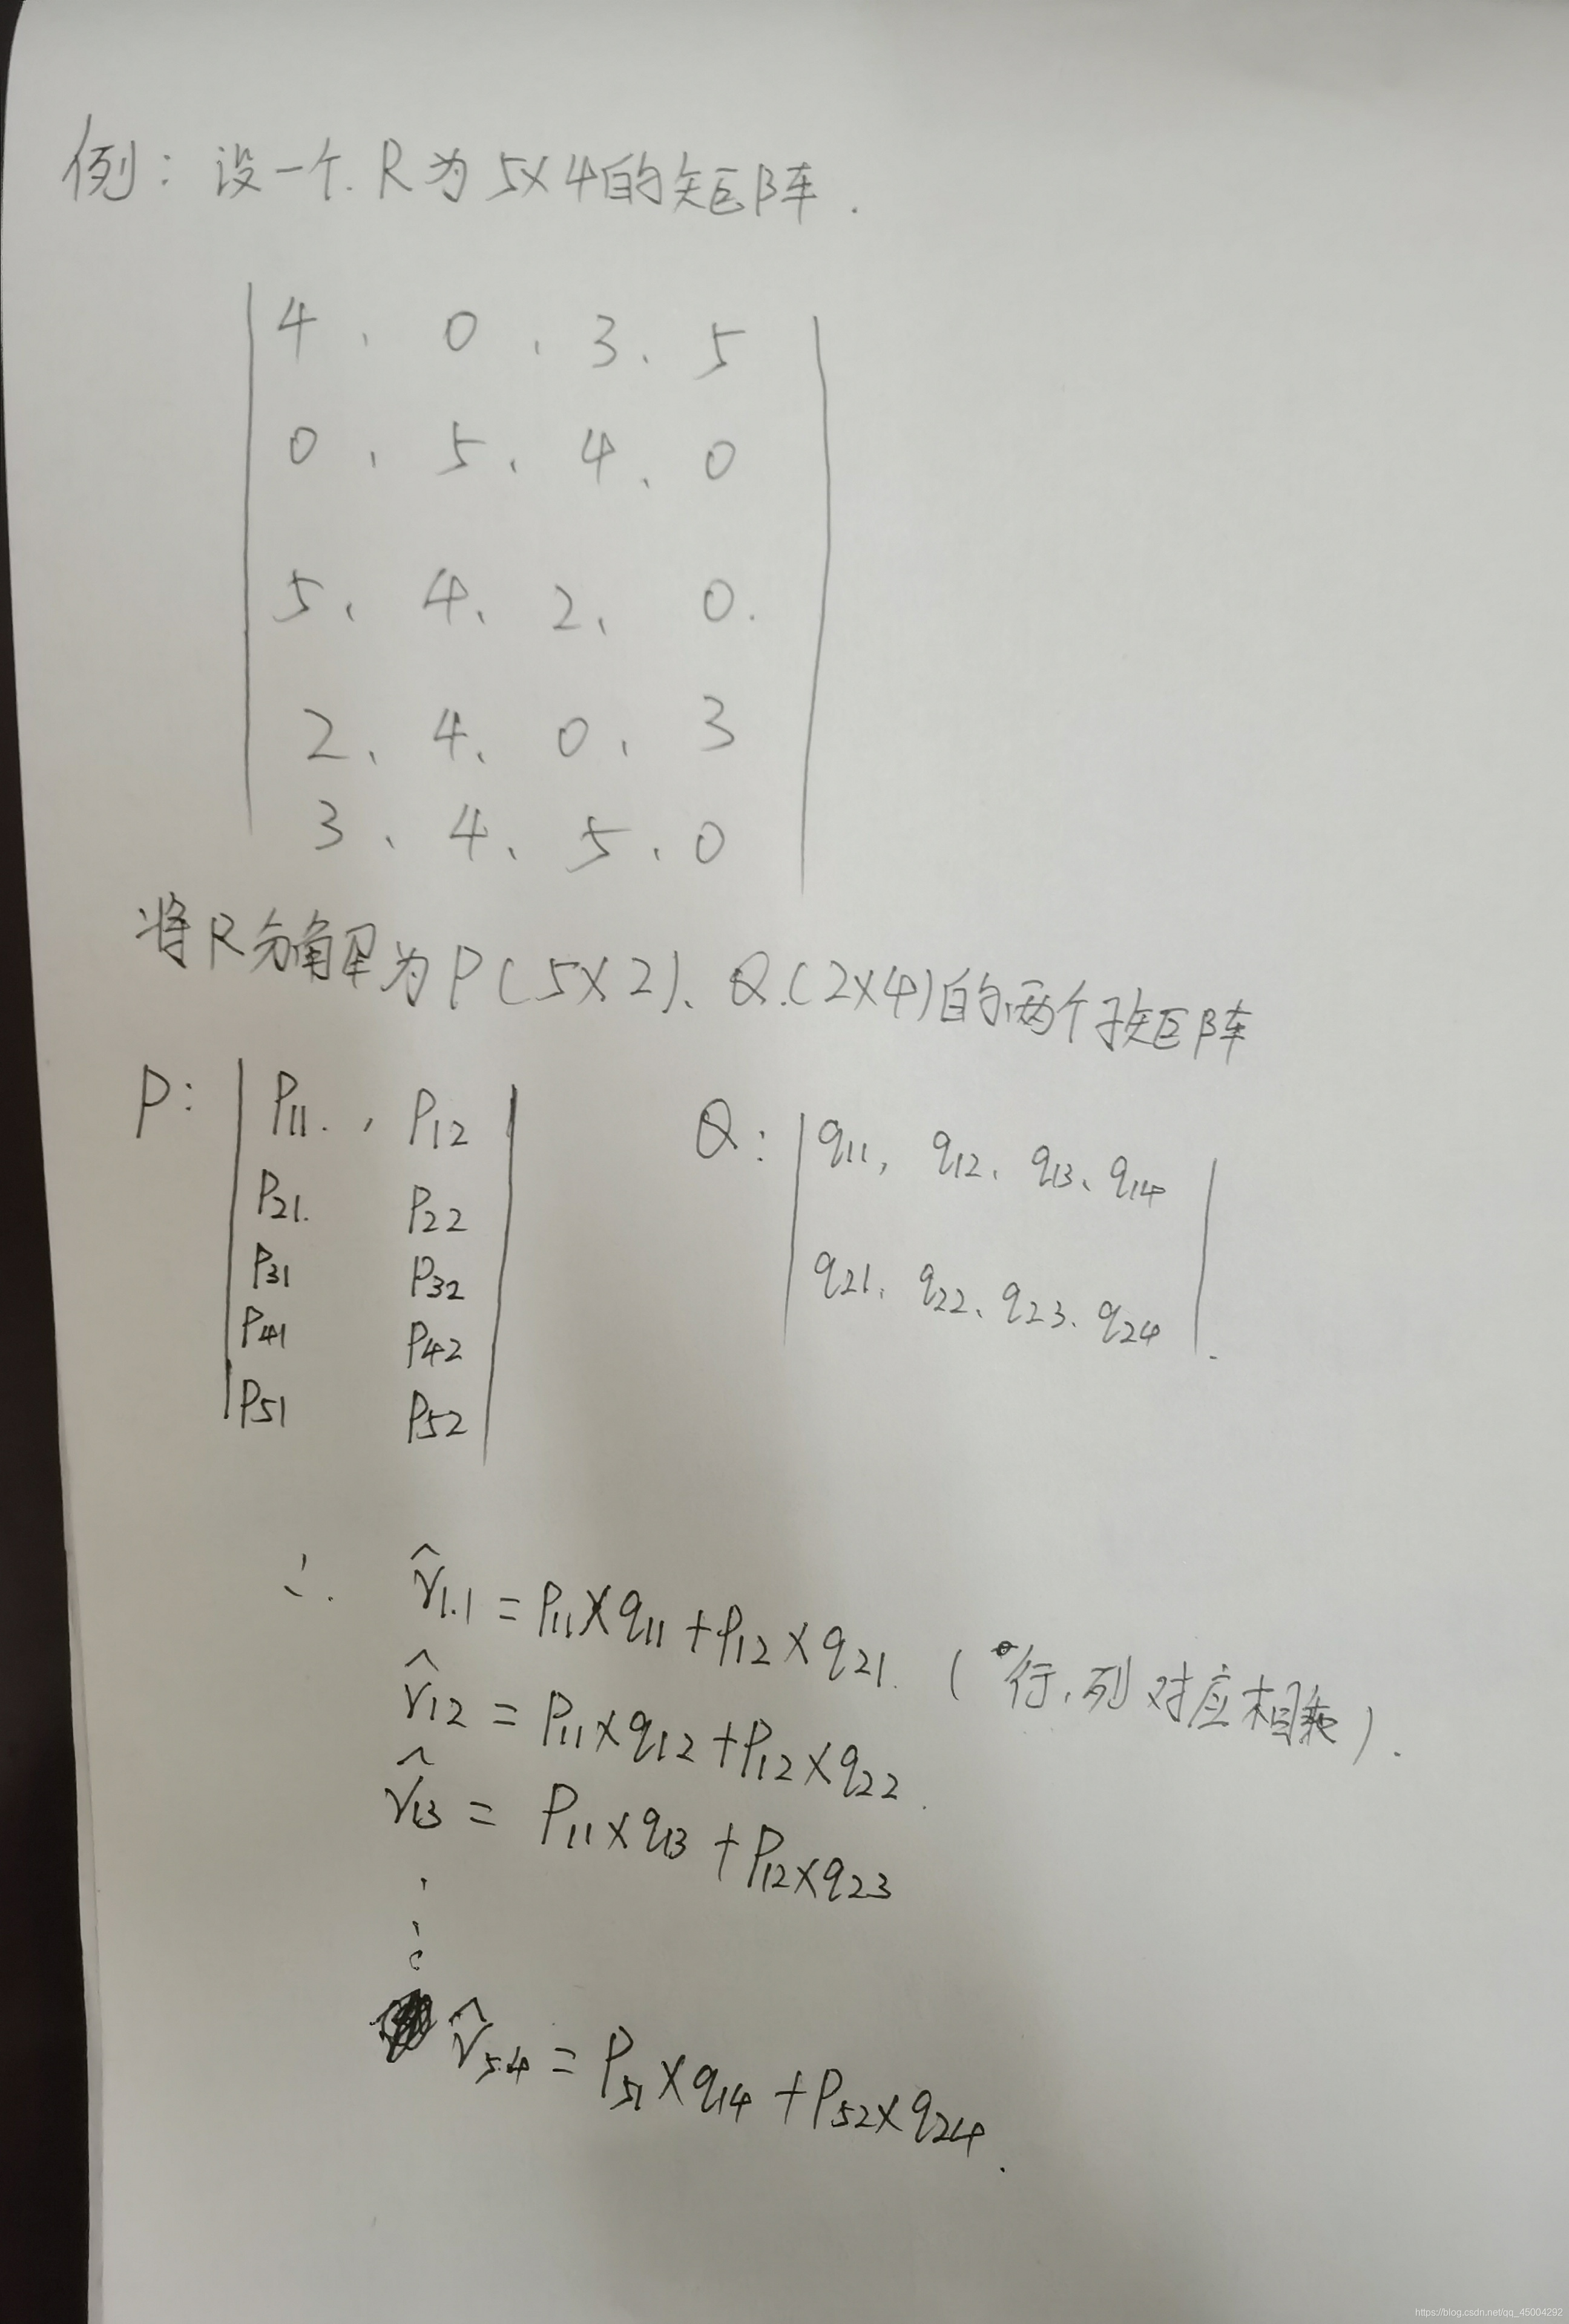 例：设一个.R为5×4的矩阵.
4、0、3、5
0、5、4、0
5、4、2、0.
2、4、0、3
3、4、5、0
将R分解为P(5×2)、Q.(2×4)的两个矩阵
P: | P11. , P12 | Q: | q11, q12、q13、q14 |
P21. P22
P31 P32
P41 P42
P51 P52
q21、q22、q23、q24 .
∴ r̂1.1 = P11×q11+P12×q21. (行、列对应相乘).
r̂12 = P11×q12+P12×q22.
r̂13 = P11×q13+P12×q23
⋮
r̂54 = P51×q14+P52×q24.
https://blog.csdn.net/qq_45004292